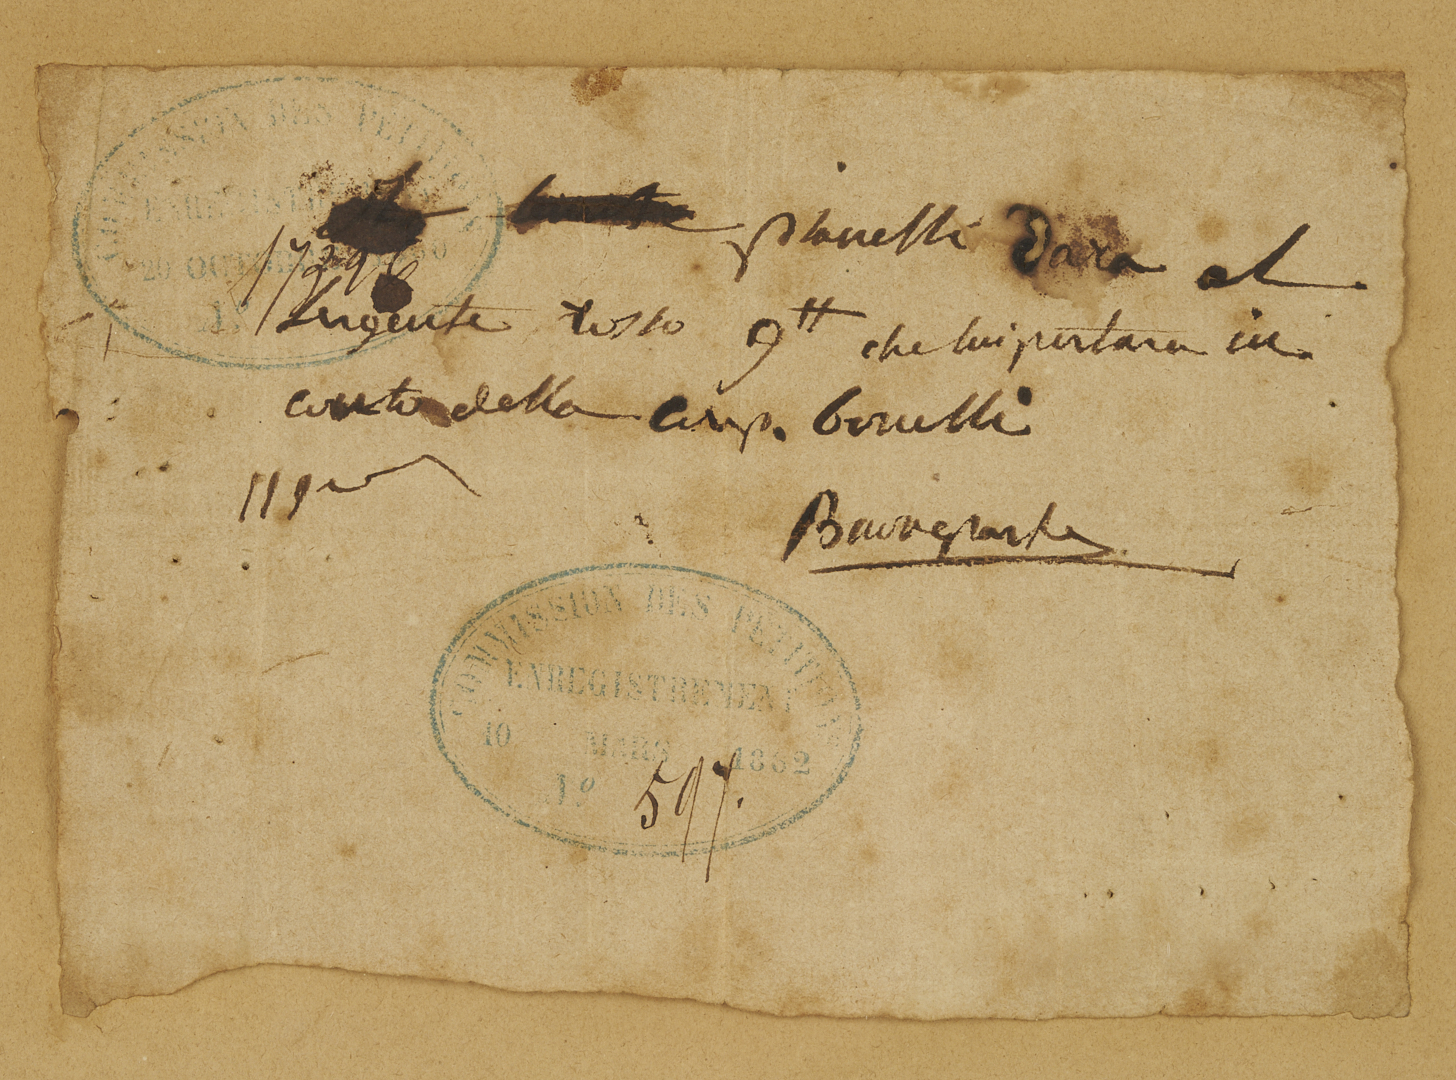 COMMISSION DES PETITIONS
ENREGISTREMENT
20 OCTOBRE
N°
pianelli Dara al
Sergente Rosso 9 ^tt che lui portara in
conto della Comp. bonelli
Buonaparte
COMMISSION DES PETITIONS
ENREGISTREMENT
10 MARS 1862
N° 597.